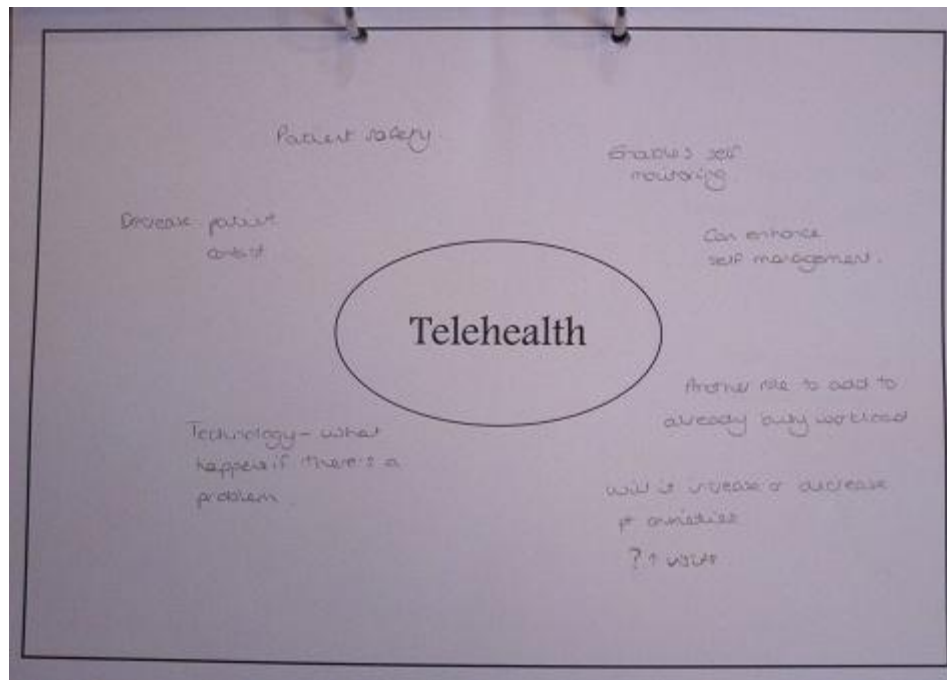 Patient safety.
Enables self
monitoring
Decrease patient
contact
Can enhance
self management.
Telehealth
Another role to add to
already busy workload
Technology - what
happens if there's a
problem.
will it increase or decrease
pt anxieties
? ↑ visits